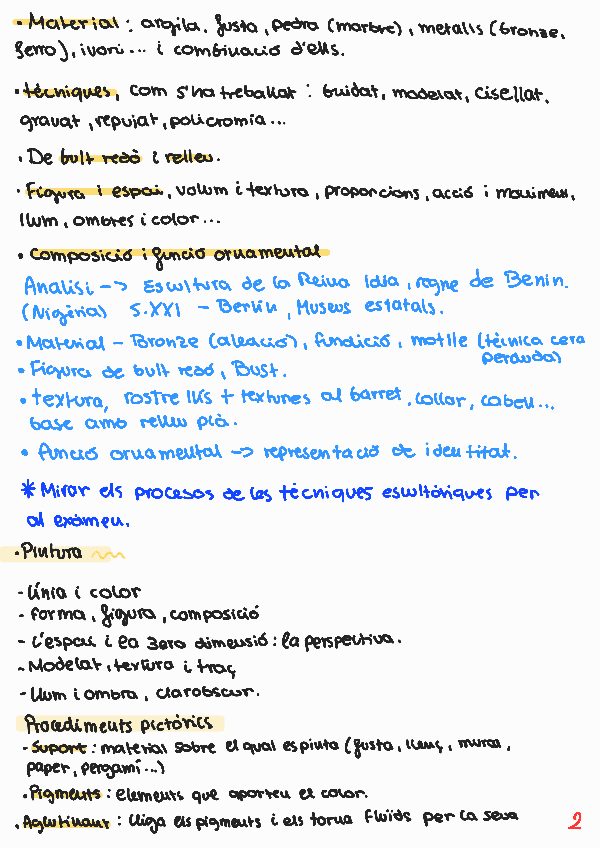 • Material : argila, fusta, pedra (marbre), metalls (bronze,
ferro), ivori... i combinació d'ells.
• tècniques, com s'ha treballat : buidat, modelat, cisellat,
gravat, repujat, policromia...
• De bult redó i relleu.
• Figura i espai, volum i textura, proporcions, acció i moviment,
llum, ombres i color...
• Composició i funció ornamental
Anàlisi --> Escultura de la Reina Idia, regne de Benin.
(Nigèria) S.XXI - Berlín, Museus estatals.
• Material - Bronze (aleació), fundició, motlle (tècnica cera
perduda)
• Figura de bult redó, Bust.
• textura, rostre llís + textures al barret, collar, cabell...
base amb relleu plà.
• funció ornamental -> representació de identitat.
* Mirar els procesos de les tècniques escultòriques per
al exàmen.
• Pintura
- Línia i color
- forma, figura, composició
- L'espai i la 3era dimensió : la perspectiva.
- Modelat, textura i traç
- Llum i ombra, clarobscur.
Procediments pictòrics
- Suport : material sobre el qual es pinta (fusta, llenç, mural,
paper, pergamí...)
• Pigments : elements que aporten el color.
• Aglutinant : lliga els pigments i els torna fluïds per la seva
2